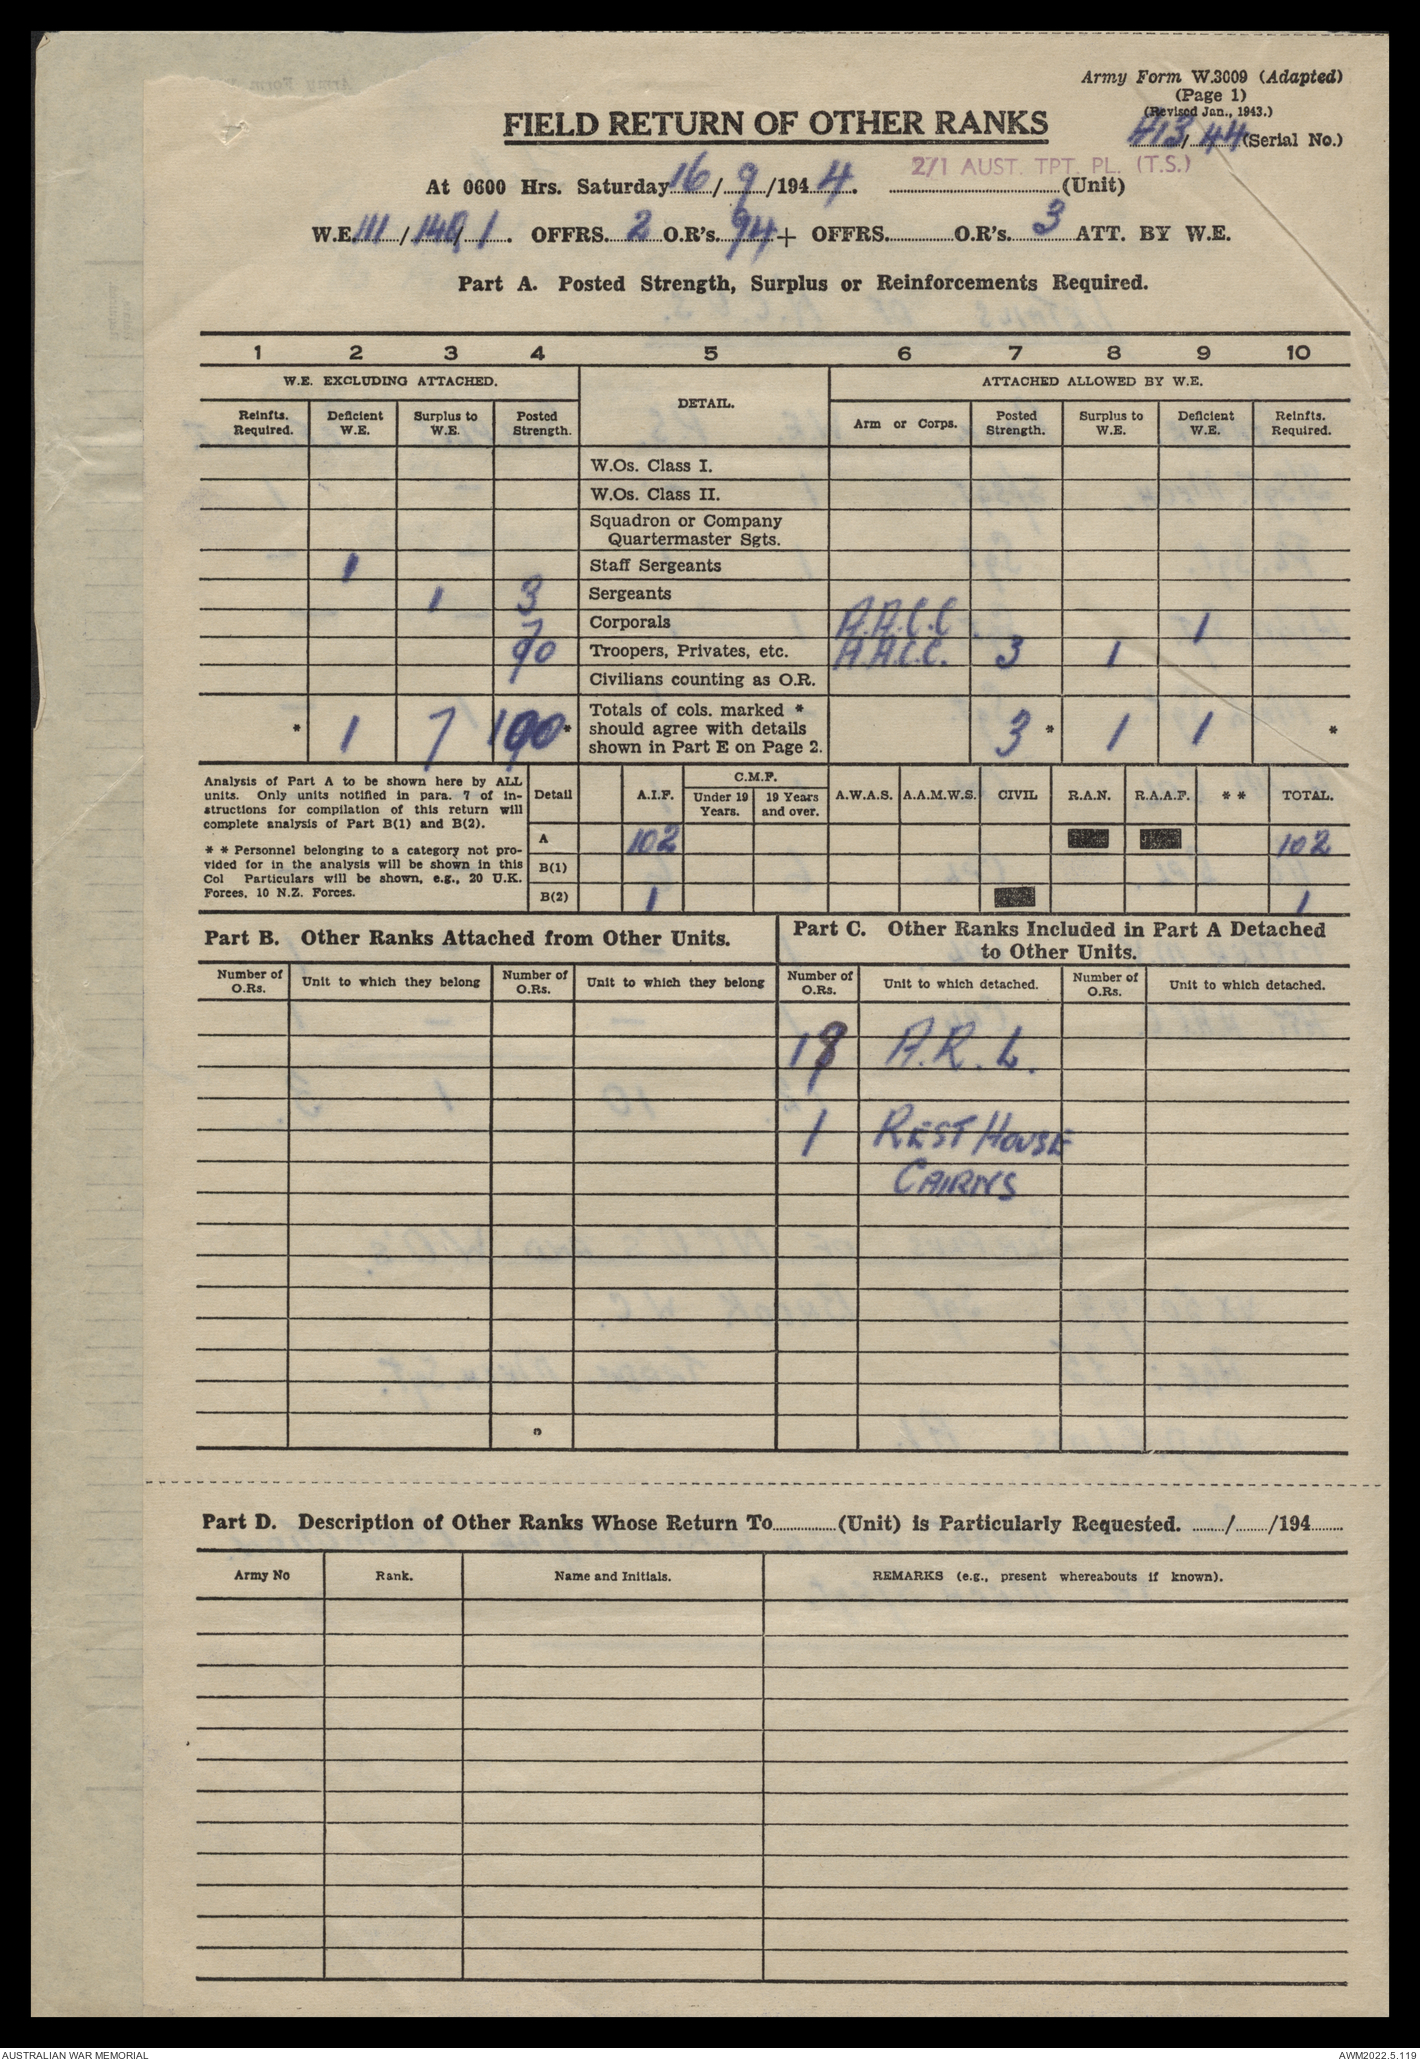 Army Form W.3009 (Adapted)
(Page 1)
(Revised Jan., 1943.)
FIELD RETURN OF OTHER RANKS
413/44 (Serial No.)
At 0600 Hrs. Saturday 16/9/1944. 2/1 AUST. TPT. PL. (T.S.) (Unit)
W.E. 111/ / 1. OFFRS. 2 O.R's. 94 + OFFRS. O.R's. 3 ATT. BY W.E.
Part A. Posted Strength, Surplus or Reinforcements Required.
1 2 3 4 5 6 7 8 9 10
W.E. EXCLUDING ATTACHED. DETAIL. ATTACHED ALLOWED BY W.E.
Reinfts. Required. Deficient W.E. Surplus to W.E. Posted Strength. Arm or Corps. Posted Strength. Surplus to W.E. Deficient W.E. Reinfts. Required.
W.Os. Class I.
W.Os. Class II.
Squadron or Company
Quartermaster Sgts.
1 Staff Sergeants
1 3 Sergeants
7 Corporals A.A.C.C. 1
90 Troopers, Privates, etc. A.A.C.C. 3 1
Civilians counting as O.R.
* 1 7 * Totals of cols. marked * should agree with details shown in Part E on Page 2. 3 * 1 1 *
Analysis of Part A to be shown here by ALL
units. Only units notified in para. 7 of in-
structions for compilation of this return will
complete analysis of Part B(1) and B(2).
* * Personnel belonging to a category not pro-
vided for in the analysis will be shown in this
Col Particulars will be shown, e.g., 20 U.K.
Forces, 10 N.Z. Forces.
Detail A.I.F. C.M.F. Under 19 Years. 19 Years and over. A.W.A.S. A.A.M.W.S. CIVIL R.A.N. R.A.A.F. * * TOTAL.
A 102 102
B(1)
B(2) 1 1
Part B. Other Ranks Attached from Other Units.
Part C. Other Ranks Included in Part A Detached
to Other Units.
Number of O.Rs. Unit to which they belong Number of O.Rs. Unit to which they belong Number of O.Rs. Unit to which detached. Number of O.Rs. Unit to which detached.
19 A.R.L.
1 REST HOUSE
CAIRNS
Part D. Description of Other Ranks Whose Return To (Unit) is Particularly Requested. / /194
Army No Rank. Name and Initials. REMARKS (e.g., present whereabouts if known).
AUSTRALIAN WAR MEMORIAL AWM2022.5.119